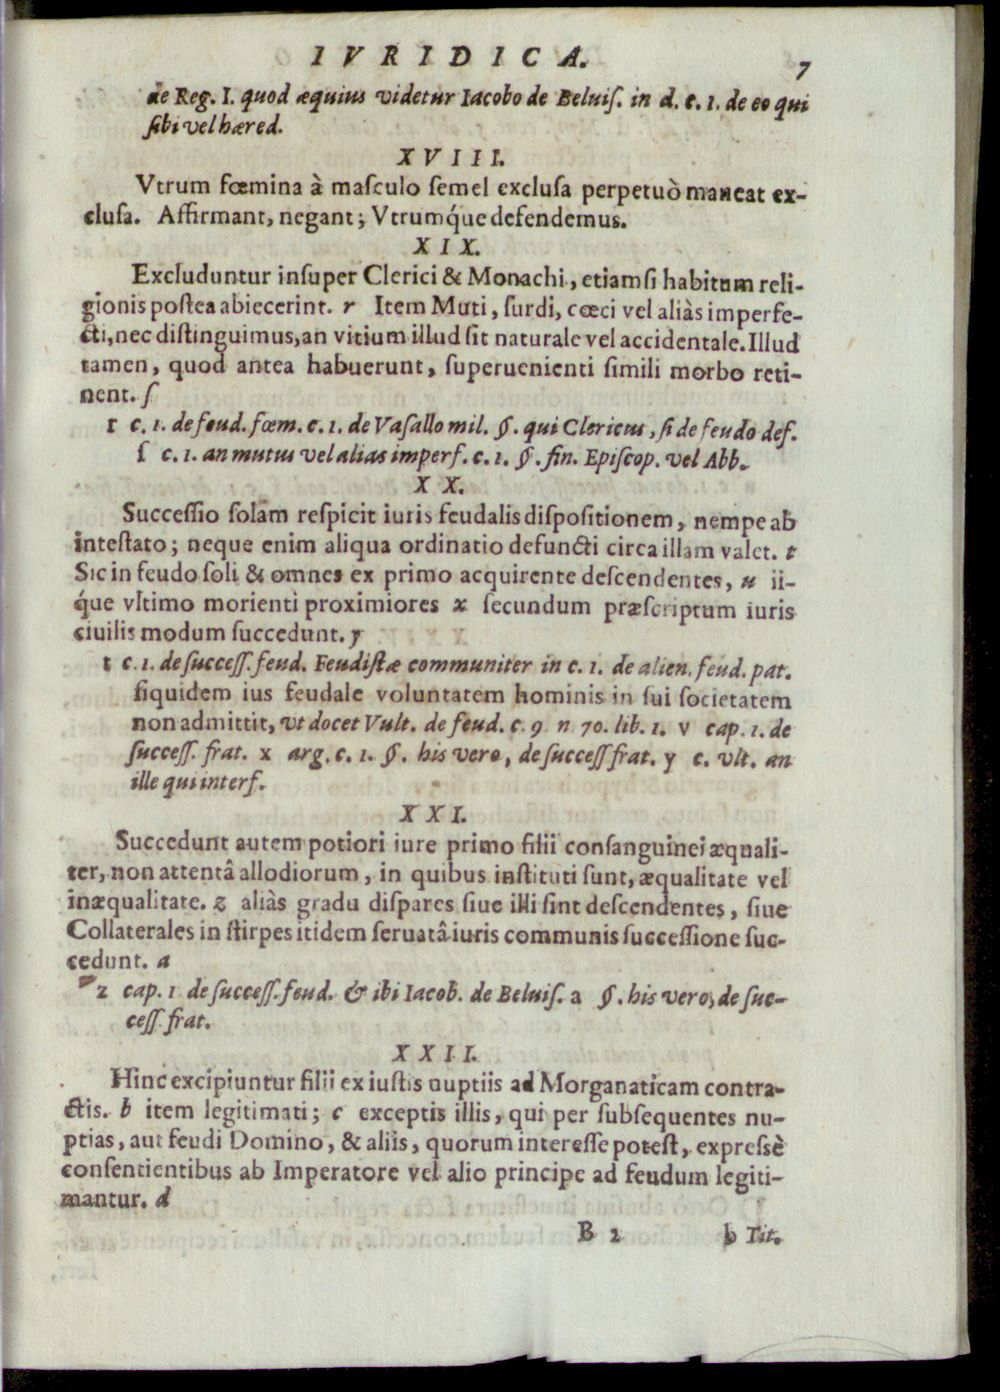 IVRIDICA. 7
de Reg. I. quod æquius videtur Iacobo de Beluiſ. in d. c. 1. de eo qui
ſibi vel hæred.
XVIII.
Vtrum fœmina à maſculo ſemel excluſa perpetuò maneat ex-
cluſa. Affirmant, negant; Vtrumq́ue defendemus.
XIX.
Excluduntur inſuper Clerici & Monachi, etiamſi habitum reli-
gionis poſtea abiecerint. r Item Muti, ſurdi, cœci vel aliàs imperfe-
cti, nec diſtinguimus, an vitium illud ſit naturale vel accidentale. Illud
tamen, quod antea habuerunt, ſuperuenienti ſimili morbo reti-
nent. ſ
r c. 1. de feud. fœm. c. 1. de Vaſallo mil. §. qui Clericus, ſi de feudo def.
ſ c. 1. an mutus vel alias imperf. c. 1. §. fin. Epiſcop. vel Abb.
XX.
Succeſſio ſolam reſpicit iuris feudalis diſpoſitionem, nempe ab
inteſtato; neque enim aliqua ordinatio defuncti circa illam valet. t
Sic in feudo ſoli & omnes ex primo acquirente deſcendentes, u ii-
q́ue vltimo morienti proximiores x ſecundum præſcriptum iuris
ciuilis modum ſuccedunt. y
t c. 1. de ſucceſſ. feud. Feudiſtæ communiter in c. 1. de alien. feud. pat.
ſiquidem ius feudale voluntatem hominis in ſui ſocietatem
non admittit, vt docet Vult. de feud. c. 9. n 70. lib. 1. v cap. 1. de
ſucceſſ. frat. x arg. c. 1. §. his vero, de ſucceſſ frat. y c. vlt. an
ille qui interf.
XXI.
Succedunt autem potiori iure primo filii conſanguinei æquali-
ter, non attentâ allodiorum, in quibus inſtituti ſunt, æqualitate vel
inæqualitate. z aliàs gradu diſpares ſiue illi ſint deſcendentes, ſiue
Collaterales in ſtirpes itidem ſeruatâ iuris communis ſucceſſione ſuc-
cedunt. a
z cap. 1 de ſucceſſ. feud. & ibi Iacob. de Beluiſ. a §. his vero, de ſuc-
ceſſ. frat.
XXII.
Hinc excipiuntur filii ex iuſtis nuptiis ad Morganaticam contra-
ctis. b item legitimati; c exceptis illis, qui per ſubſequentes nu-
ptias, aut feudi Domino, & aliis, quorum intereſſe poteſt, expreſsè
conſentientibus ab Imperatore vel alio principe ad feudum legiti-
mantur. d
B 2 b Tit.